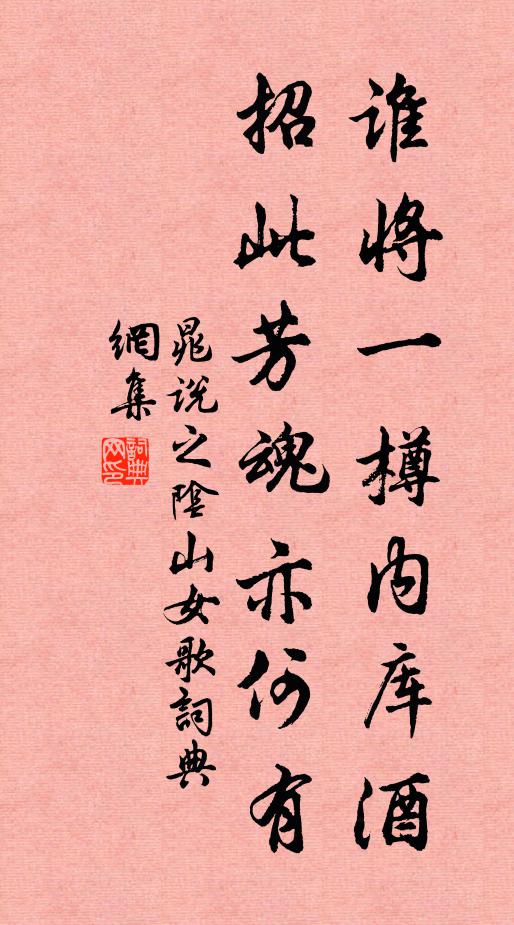 谁将一樽内库酒
招此芳魂亦何有
晁说之阴山女歌詞典
網集
詞典网印